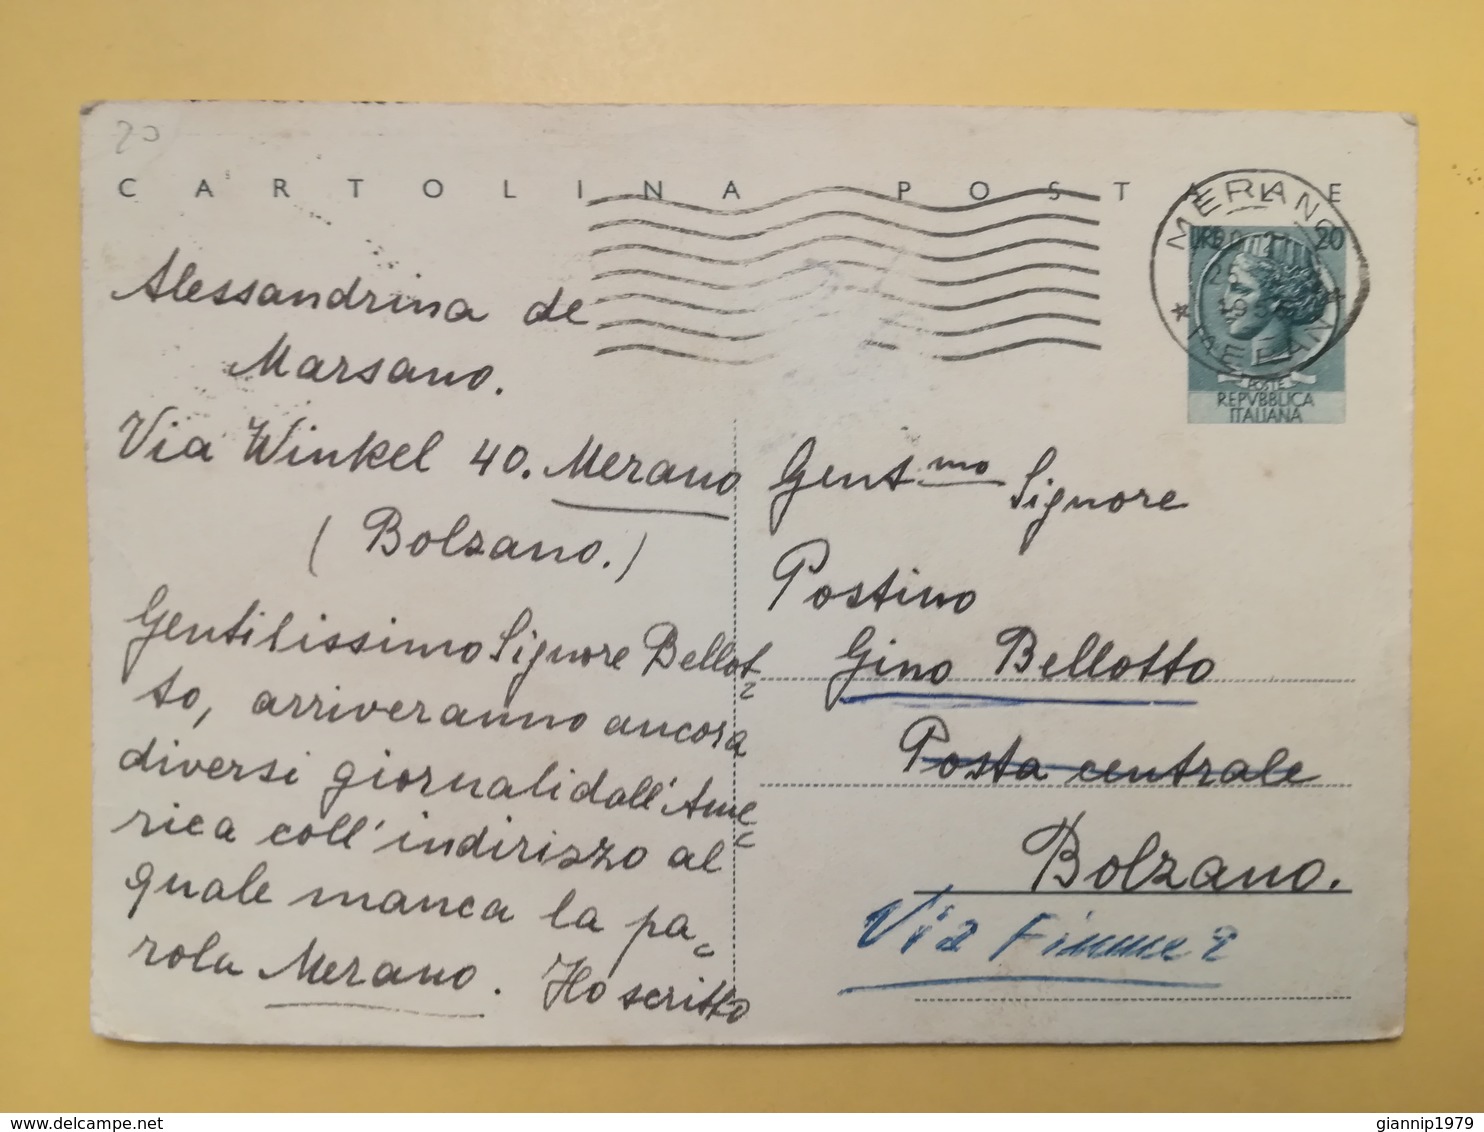 20
CARTOLINA POSTALE
MERANO
LIRE 20
MERAN
POSTE
REPVBBLICA
ITALIANA
Alessandrina de
Marsano.
Via Winkel 40. Merano
(Bolzano.)
Gentilissimo Signore Bellot=
to, arriveranno ancora
diversi giornali dall'Ame=
rica coll'indirizzo al
quale manca la pa=
rola Merano. Ho scritto
Gent.mo Signore
Postino
Gino Bellotto
Posta centrale
Bolzano.
Via
giannip1979